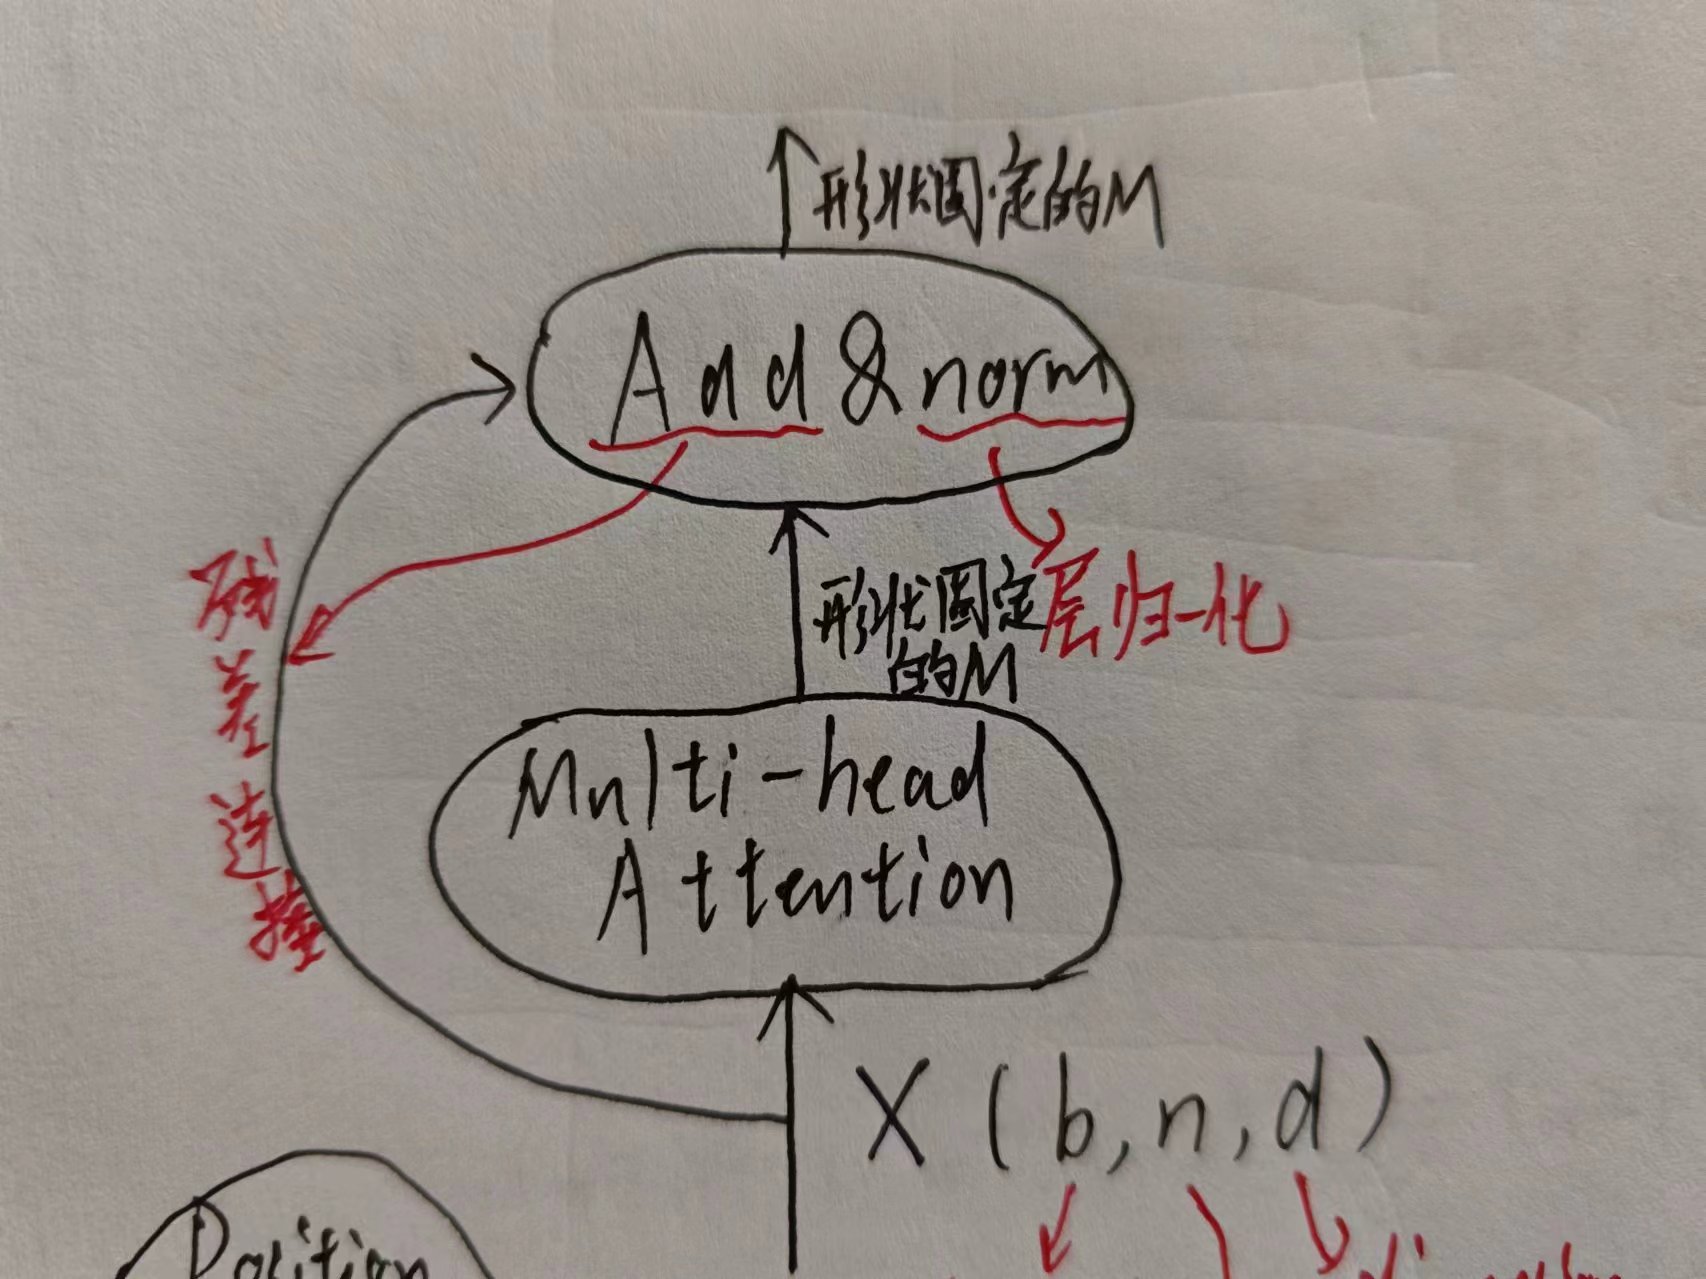 形状固定的M
Add & norm
残差连接
形状固定
的M
层归一化
Multi-head
Attention
X (b, n, d)
Position